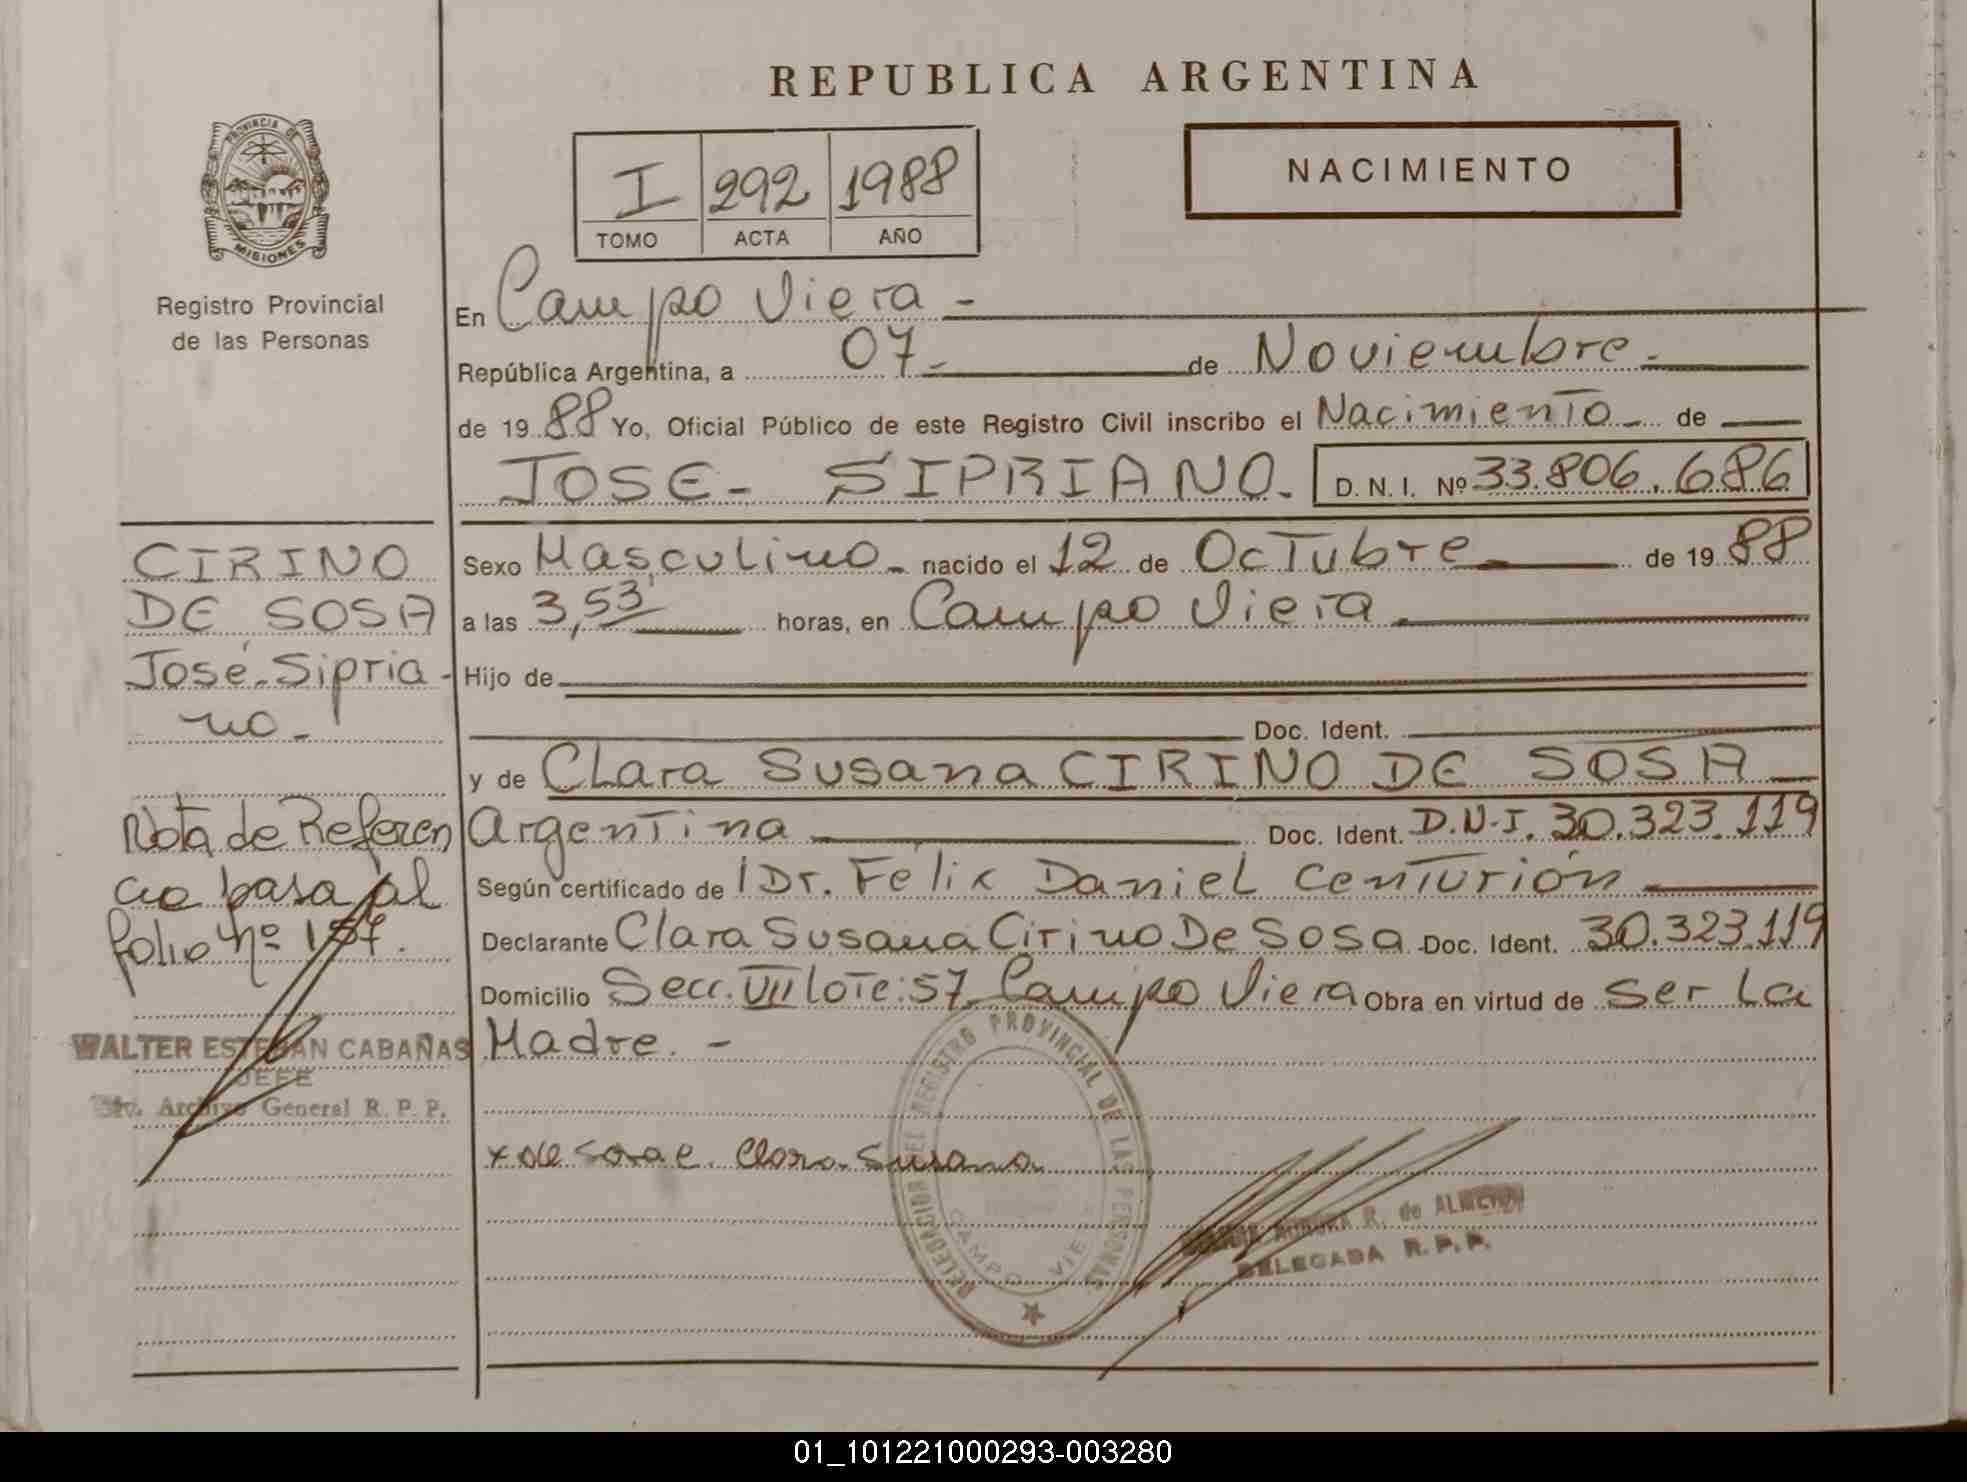 REPUBLICA ARGENTINA
PROVINCIA DE
MISIONES
Registro Provincial
de las Personas
I 292 1988
TOMO ACTA AÑO
NACIMIENTO
En Campo Viera -
República Argentina, a 07 - de Noviembre -
de 1988 Yo, Oficial Público de este Registro Civil inscribo el Nacimiento - de
JOSE - SIPRIANO. D. N. I. Nº 33.806.686
Sexo Masculino - nacido el 12 de Octubre de 1988
a las 3,53 horas, en Campo Viera
Hijo de
Doc. Ident.
y de Clara Susana CIRINO DE SOSA
Argentina Doc. Ident. D.N.I. 30.323.119
Según certificado de Dr. Felix Daniel Centurión
Declarante Clara Susana Cirino De Sosa Doc. Ident. 30.323.119
Domicilio Secc. VII Lote: 57 Campo Viera Obra en virtud de ser La
Madre. -
x de Sosa C. Clara Susana
DELEGACION DEL REGISTRO PROVINCIAL DE LAS PERSONAS
CAMPO VIERA
R. de ALMEIDA
DELEGADA R. P. P.
CIRINO
DE SOSA
José Sipria-
no -
Nota de Referen
cia pasa al
folio Nº 157.
WALTER ESTEBAN CABAÑAS
JEFE
Div. Archivo General R. P. P.
01_101221000293-003280